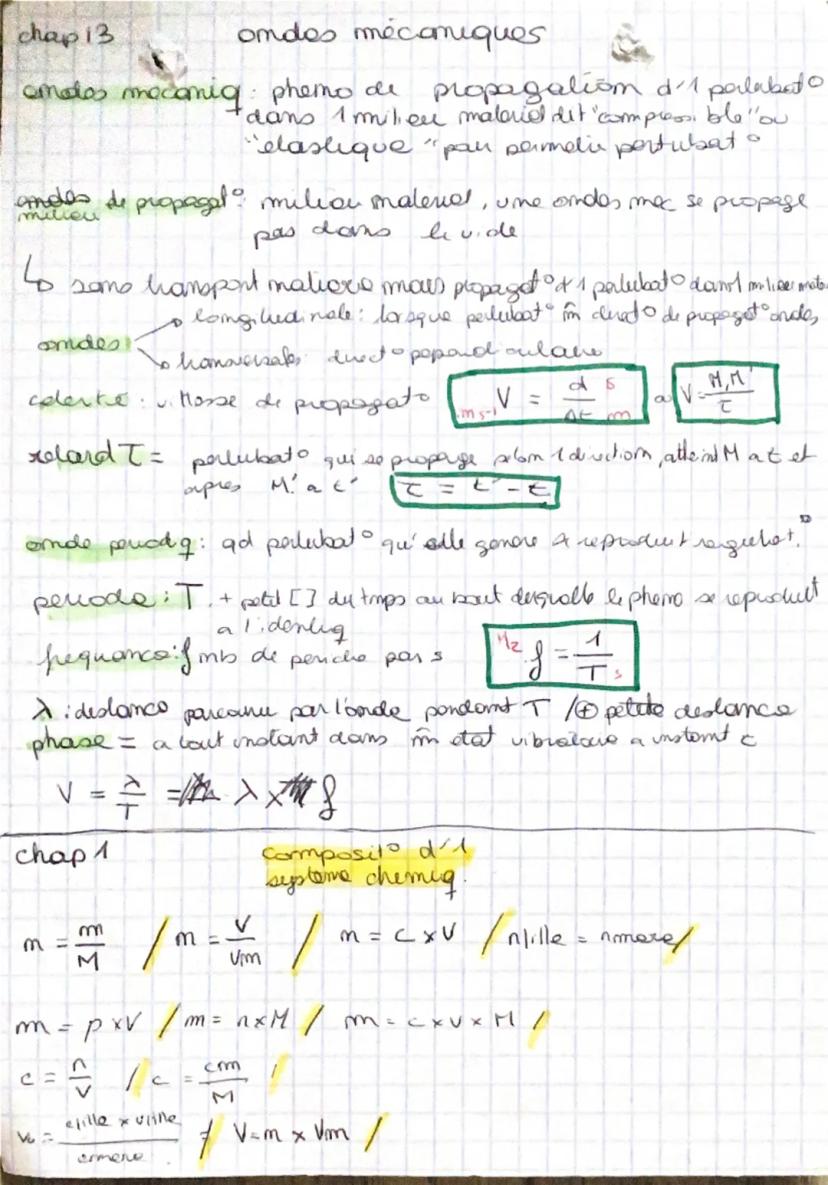 chap 13 ondes mécaniques
ondes mecaniq : pheno de propagation d'1 pertubat°
dans 1 milieu materiel dit "compressible" ou
"elastique" pour permettre pertubat°
ondes de propagat° : milieu materiel, une ondes mec se propage
milieu
pas dans le vide
↳ sans transport matiere mais propagat° d'1 pertubat° dans 1 milieu mate
→ longitudinale : lorsque pertubat° m̂ direct° de propagat° ondes
ondes
→ transversale direct° perpendiculaire
celerité : vitesse de propagat° m.s-1 V = d / Δt s m V = M,M' / τ
retard τ = pertubat° qui se propage selon 1 direction, atteint M a t et
apres M' a t' τ = t' - t
onde periodq : qd pertubat° qu'elle genere se reproduit regulier t.
periode : T + petit [] du tmps au bout desquelle le pheno se reproduit
a l'identiq
frequance : f nb de periode par s Hz f = 1 / T s
λ : distance parcourue par l'onde pendant T / ⊕ petite distance
phase = a tout instant dans m̂ etat vibratoire a instant t
V = λ / T = λ x f
chap 1 composit° d'1
systeme chemiq.
n = m / M / n = V / Vm / n = C x V / n fille = n mere /
m = ρ x V / m = n x M / m = c x v x M /
c = n / V / c = cm / M /
V₀ = c fille x v fille / c mere / V = n x Vm /